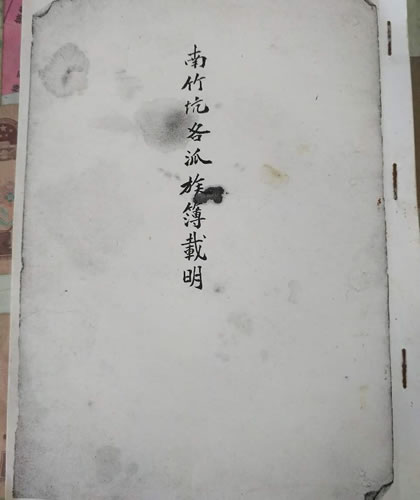 南竹坑各派族簿載明